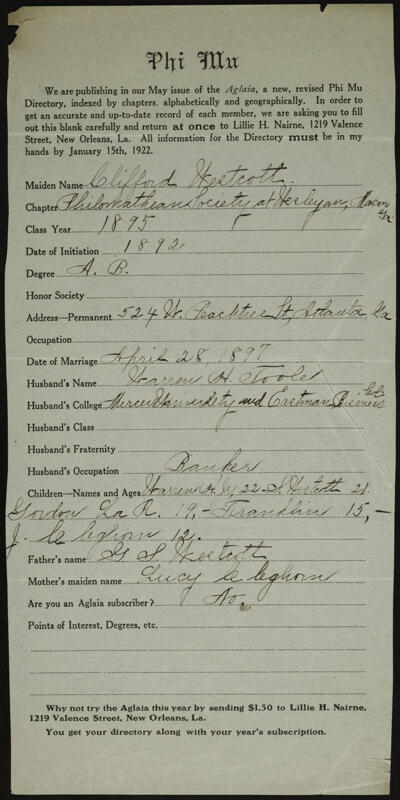 Phi Mu
We are publishing in our May issue of the Aglaia, a new, revised Phi Mu
Directory, indexed by chapters. alphabetically and geographically. In order to
get an accurate and up-to-date record of each member, we are asking you to fill
out this blank carefully and return at once to Lillie H. Nairne, 1219 Valence
Street, New Orleans, La. All information for the Directory must be in my
hands by January 15th, 1922.
Maiden Name Clifford Westcott.
Chapter Philomathean Society at Wesleyan, Macon Ga
Class Year 1895
Date of Initiation 1892
Degree A. B.
Honor Society
Address—Permanent 524 W. Peachtree St, Atlanta, Ga
Occupation
Date of Marriage April 28, 1897
Husband's Name Warren H. Toole
Husband's College Mercer University and Eastman Business Col.
Husband's Class
Husband's Fraternity
Husband's Occupation Banker
Children—Names and Ages Warren 22 - S. Westcott 21.
Gordon La R. 19, - Franklin 15, -
J. Cleghorn 12.
Father's name S Westcott
Mother's maiden name Lucy Cleghorn
Are you an Aglaia subscriber? No.
Points of Interest, Degrees, etc.
Why not try the Aglaia this year by sending $1.50 to Lillie H. Nairne,
1219 Valence Street, New Orleans, La.
You get your directory along with your year's subscription.